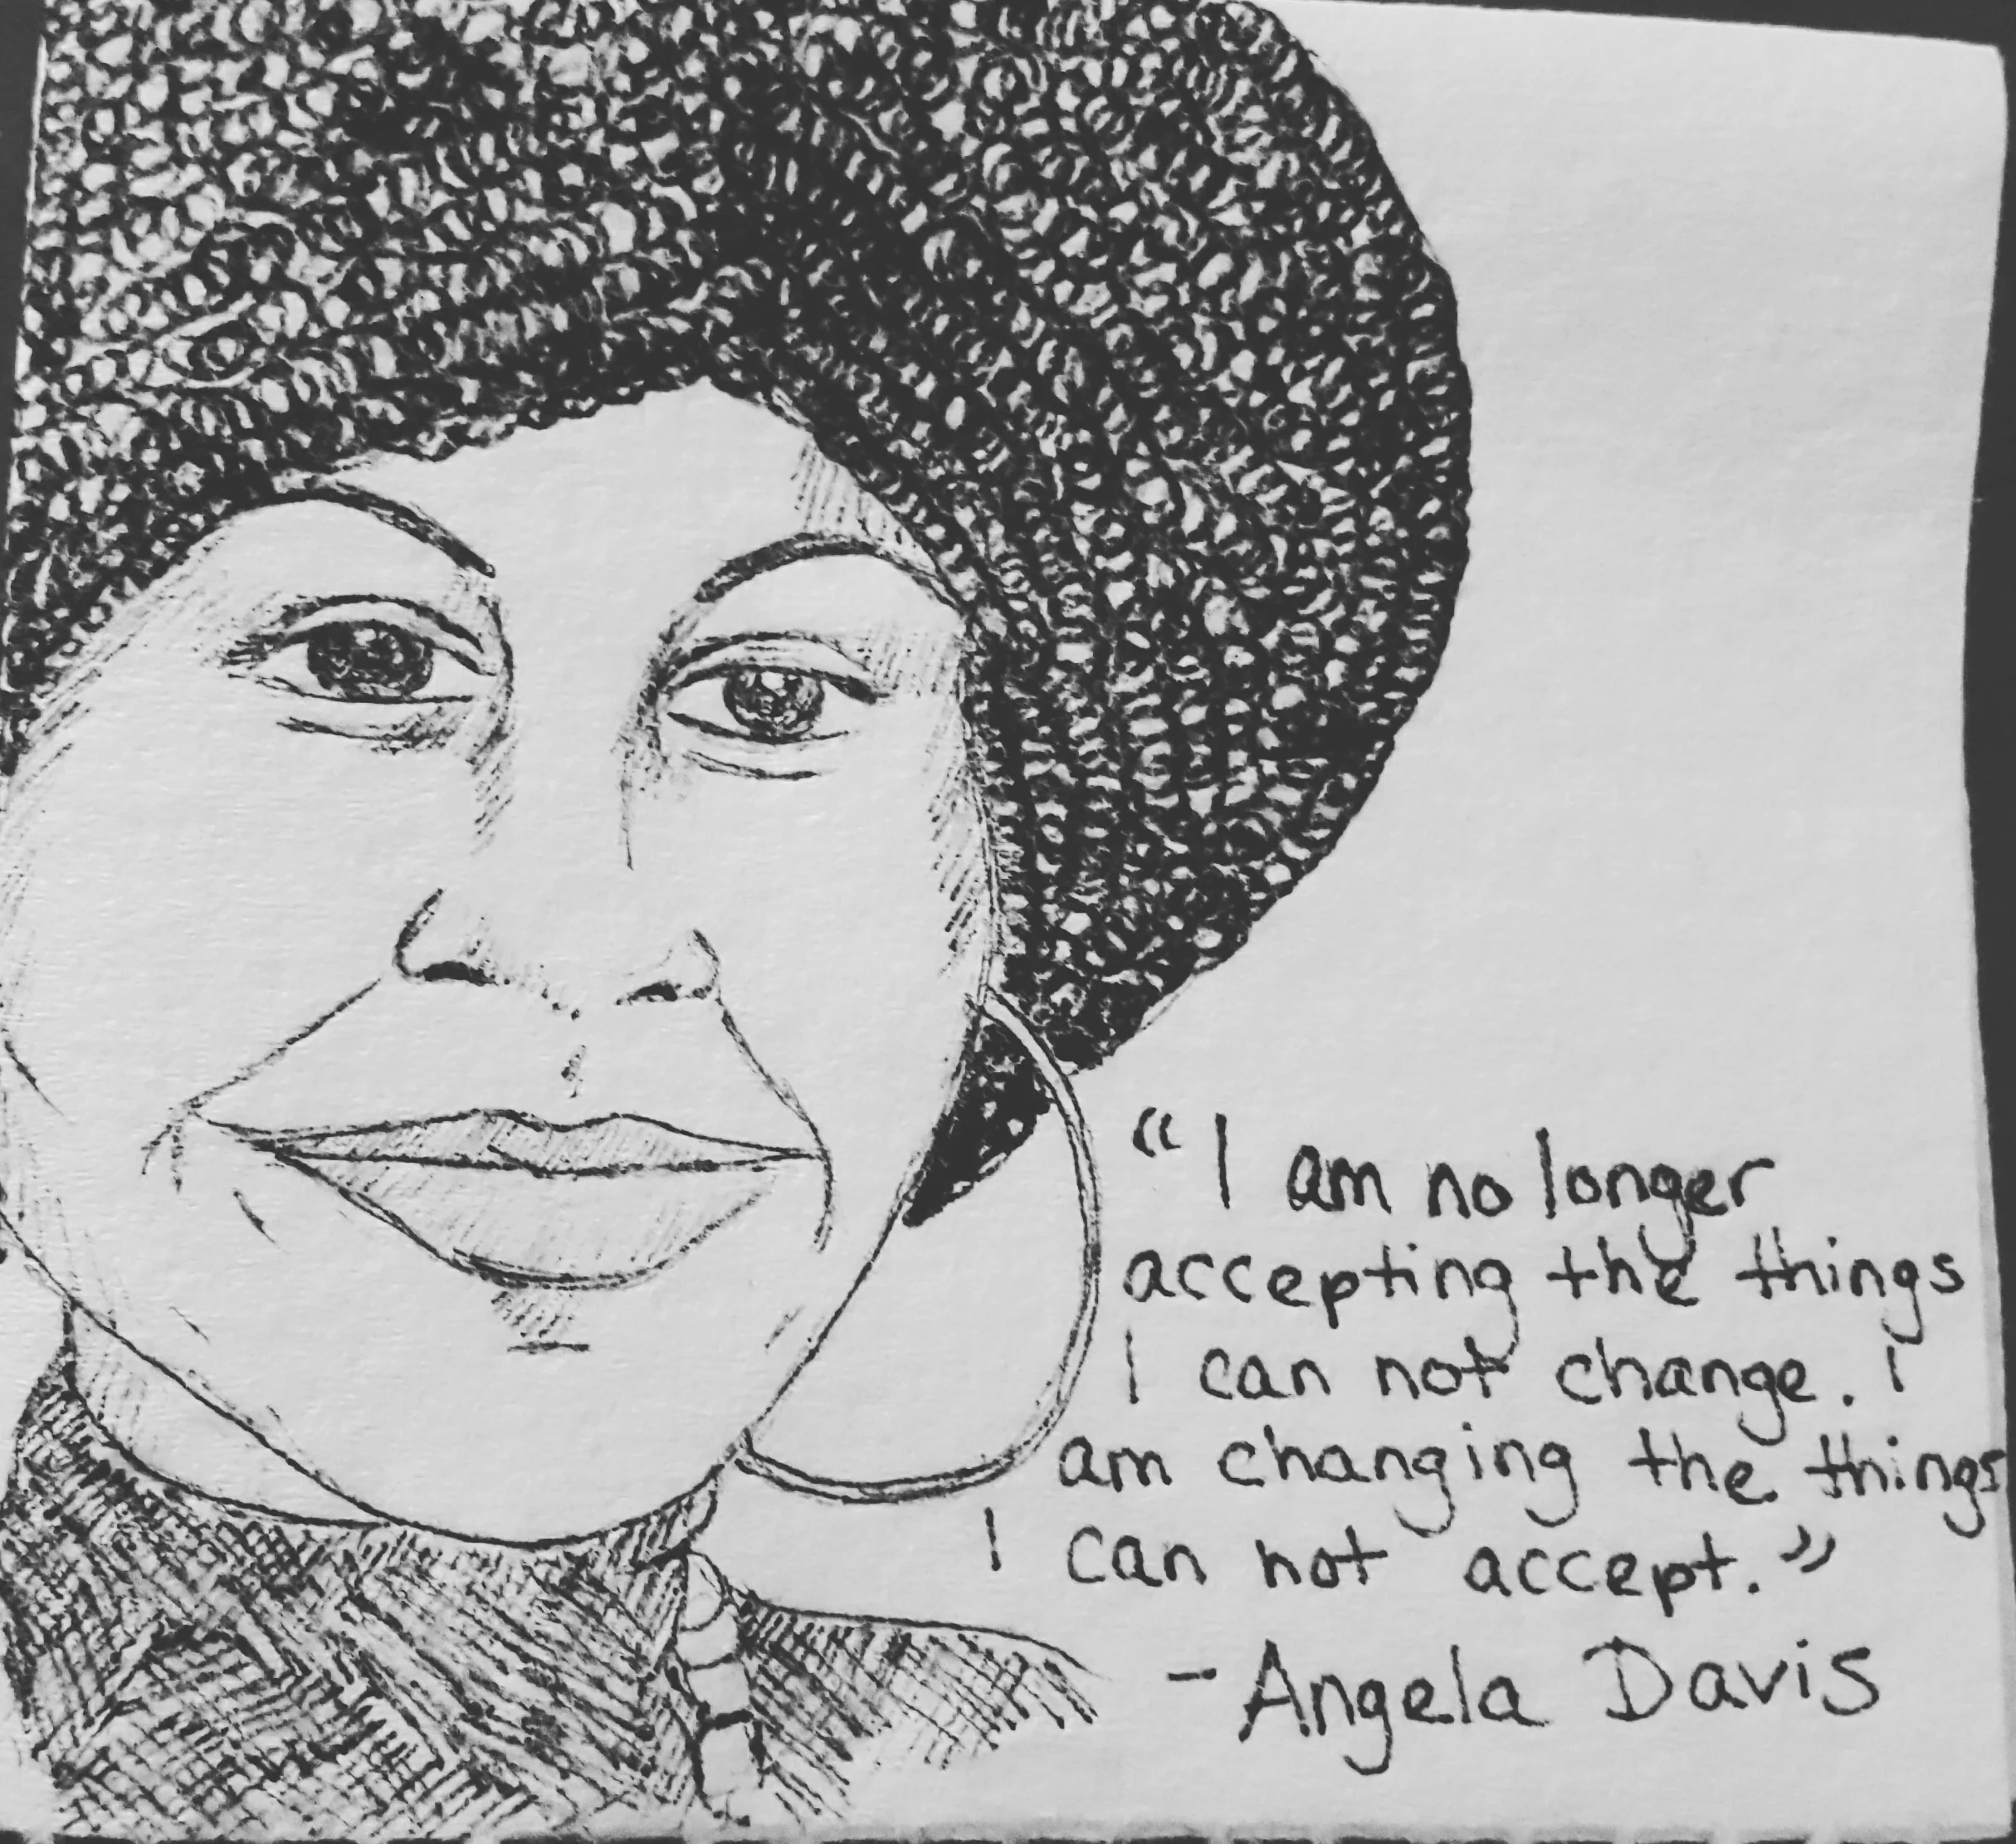 “I am no longer
accepting the things
I can not change. I
am changing the things
I can not accept.”
- Angela Davis